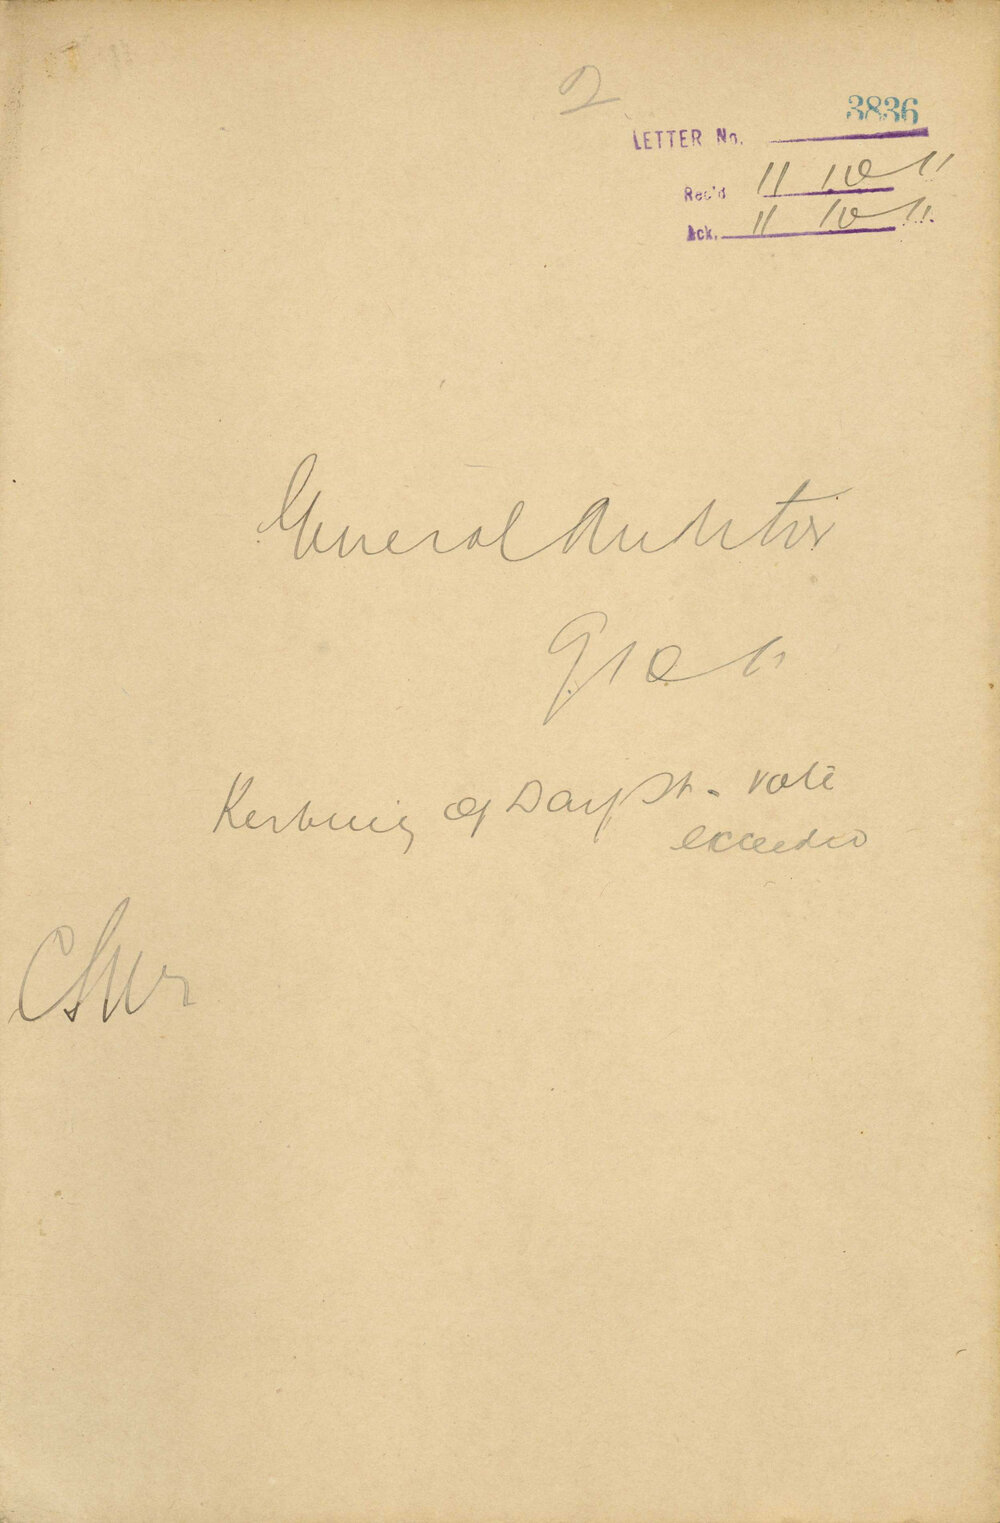 2
3836
LETTER No.
Rec'd 11 10 11
Ack. 11 10 11
General Auditor
9 10 11
Kerbing of Day St - vote
exceeded